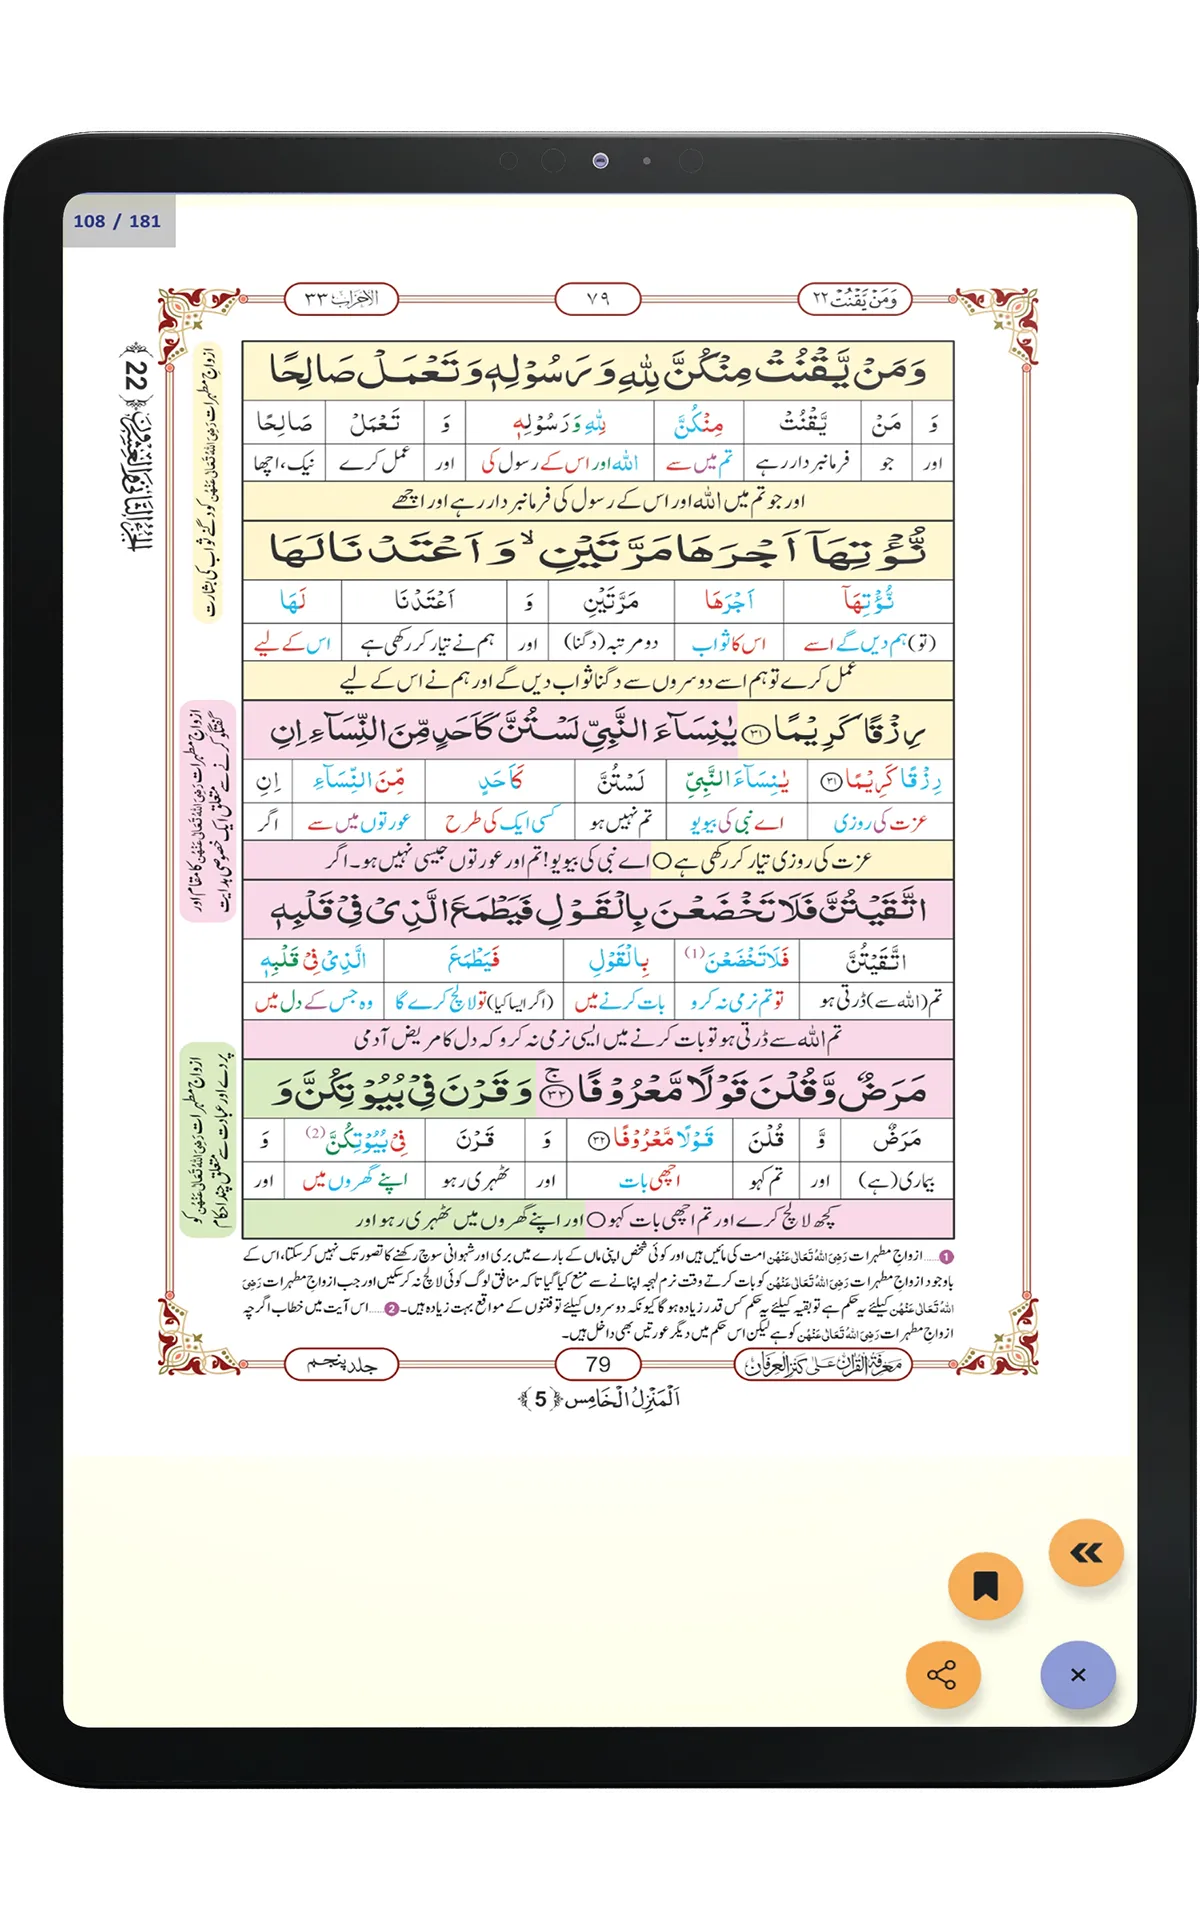 108 / 181
وَمَنْ يَّقْنُتْ ٢٢
٧٩
الاحزاب ٣٣
وَ مَنْ يَّقْنُتْ مِنْكُنَّ لِلّٰهِ وَ رَسُوْلِهٖ وَ تَعْمَلْ صَالِحًا
وَ مَنْ يَّقْنُتْ مِنْكُنَّ لِلّٰهِ وَ رَسُوْلِهٖ وَ تَعْمَلْ صَالِحًا
اور جو فرمانبردار رہے تم میں سے اللہ اور اس کے رسول کی اور عمل کرے نیک، اچھا
اور جو تم میں اللہ اور اس کے رسول کی فرمانبردار رہے اور اچھے
نُّؤْتِهَاۤ اَجْرَهَا مَرَّتَيْنِ ۙ وَ اَعْتَدْنَا لَهَا
نُّؤْتِهَاۤ اَجْرَهَا مَرَّتَيْنِ وَ اَعْتَدْنَا لَهَا
(تو) ہم دیں گے اسے اس کا ثواب دو مرتبہ (دگنا) اور ہم نے تیار کر رکھی ہے اس کے لیے
عمل کرے تو ہم اسے دوسروں سے دگنا ثواب دیں گے اور ہم نے اس کے لیے
رِزْقًا كَرِيْمًا ﴿٣١﴾ يٰنِسَآءَ النَّبِيِّ لَسْتُنَّ كَاَحَدٍ مِّنَ النِّسَآءِ اِنِ
رِزْقًا كَرِيْمًا ﴿٣١﴾ يٰنِسَآءَ النَّبِيِّ لَسْتُنَّ كَاَحَدٍ مِّنَ النِّسَآءِ اِنِ
عزت کی روزی اے نبی کی بیویو تم نہیں ہو کسی ایک کی طرح عورتوں میں سے اگر
عزت کی روزی تیار کر رکھی ہے ○ اے نبی کی بیویو! تم اور عورتوں جیسی نہیں ہو۔ اگر
اتَّقَيْتُنَّ فَلَا تَخْضَعْنَ بِالْقَوْلِ فَيَطْمَعَ الَّذِيْ فِيْ قَلْبِهٖ
اتَّقَيْتُنَّ فَلَا تَخْضَعْنَ (1) بِالْقَوْلِ فَيَطْمَعَ الَّذِيْ فِيْ قَلْبِهٖ
تم (اللہ سے) ڈرتی ہو تو تم نرمی نہ کرو بات کرنے میں (اگر ایسا کیا) تو لالچ کرے گا وہ جس کے دل میں
تم اللہ سے ڈرتی ہو تو بات کرنے میں ایسی نرمی نہ کرو کہ دل کا مریض آدمی
مَرَضٌ وَّ قُلْنَ قَوْلًا مَّعْرُوْفًا ﴿٣٢﴾ ۚ وَ قَرْنَ فِيْ بُيُوْتِكُنَّ وَ
مَرَضٌ وَّ قُلْنَ قَوْلًا مَّعْرُوْفًا ﴿٣٢﴾ وَ قَرْنَ فِيْ بُيُوْتِكُنَّ (2) وَ
بیماری (ہے) اور تم کہو اچھی بات اور ٹھہری رہو اپنے گھروں میں اور
کچھ لالچ کرے اور تم اچھی بات کہو ○ اور اپنے گھروں میں ٹھہری رہو اور
1 ..... ازواج مطہرات رَضِیَ اللہُ تَعَالٰی عَنْهُنَّ امت کی مائیں ہیں اور کوئی شخص اپنی ماں کے بارے میں بری اور شہوانی سوچ رکھنے کا تصور تک نہیں کر سکتا، اس کے
باوجود ازواج مطہرات رَضِیَ اللہُ تَعَالٰی عَنْهُنَّ کو بات کرتے وقت نرم لہجہ اپنانے سے منع کیا گیا تاکہ منافق لوگ کوئی لالچ نہ کر سکیں اور جب ازواج مطہرات رَضِیَ
اللہُ تَعَالٰی عَنْهُنَّ کیلئے یہ حکم ہے تو بقیہ کیلئے یہ حکم کس قدر زیادہ ہو گا کیونکہ دوسروں کیلئے تو فتنوں کے مواقع بہت زیادہ ہیں۔ 2 ..... اس آیت میں خطاب اگرچہ
ازواج مطہرات رَضِیَ اللہُ تَعَالٰی عَنْهُنَّ کو ہے لیکن اس حکم میں دیگر عورتیں بھی داخل ہیں۔
معرفۃ القرآن علی کنز العرفان
79
جلد پنجم
اَلْمَنْزِلُ الْخَامِس ﴿ 5 ﴾
ازواج مطہرات رَضِیَ اللہُ تَعَالٰی عَنْهُنَّ کو دگنے ثواب کی بشارت
ازواج مطہرات رَضِیَ اللہُ تَعَالٰی عَنْهُنَّ کا مقام اور
گفتگو کرنے سے متعلق ایک خصوصی ہدایت
ازواج مطہرات رَضِیَ اللہُ تَعَالٰی عَنْهُنَّ کو
پردے اور عبادت سے متعلق چند احکام
الجزء الثاني والعشرون ﴿ 22 ﴾